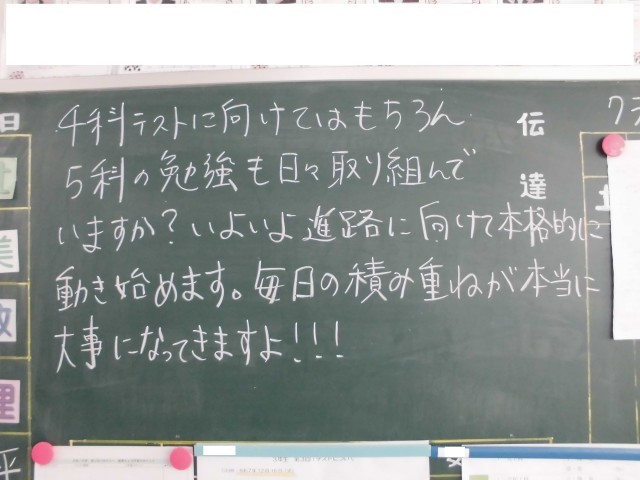 4科テストに向けてはもちろん
5科の勉強も日々取り組んで
いますか?いよいよ進路に向けて本格的に
動き始めます。毎日の積み重ねが本当に
大事になってきますよ!!!
伝達
日
美
理